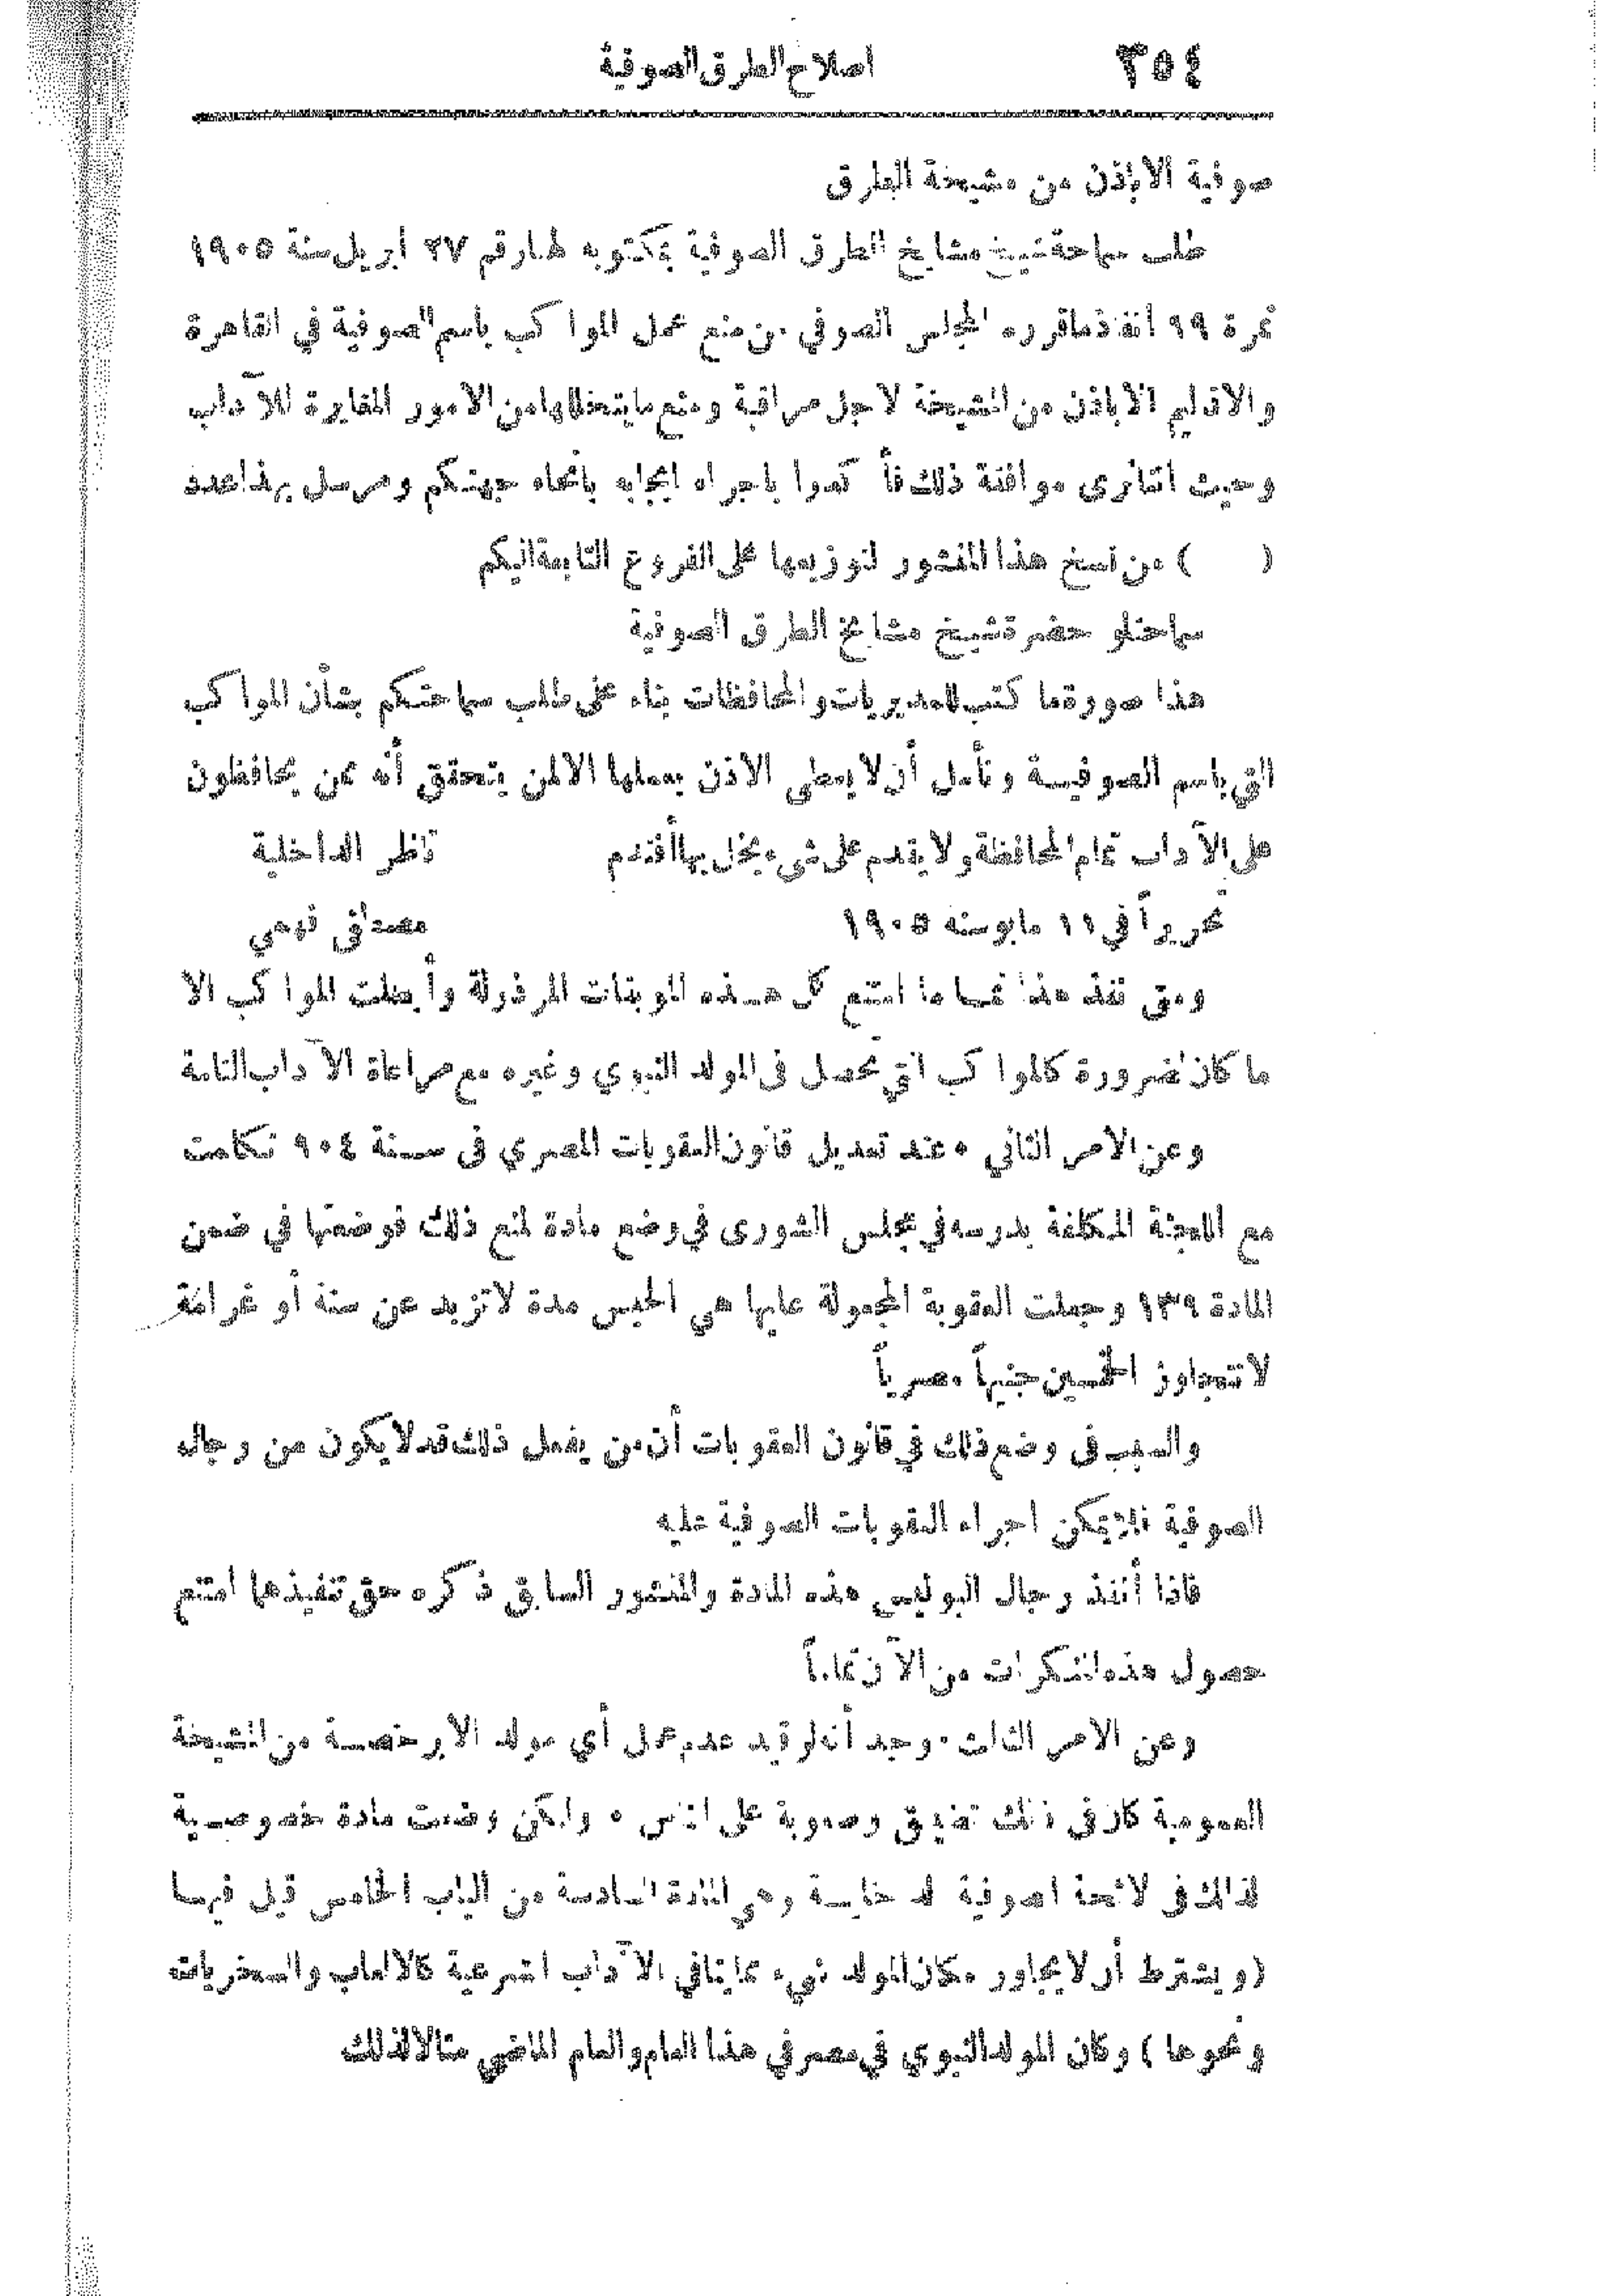 ٣٥٤
اصلاح الطرق الصوفية
صوفية الا بإذن من مشيخة الطرق
طلب سماحة شيخ مشايخ الطرق الصوفية بمكتوبه لهارقم ٢٧ أبريل سنة ١٩٠٥
نمرة ٩٩ انفاذ ماقرره المجلس الصوفي من منع عمل المواكب باسم الصوفية في القاهرة
والاقاليم الا باذن من المشيخة لاجل مراقبة ومنع مايتخللها من الامور المغايرة للآداب
وحيث اننانرى موافقة ذلك فأكدوا باجراء ايجابه بانحاء جهتكم ومرسل بهذا عدد
(      ) من نسخ هذا المنشور لتوزيعها على الفروع التابعة اليكم
سماحتلو حضرة شيخ مشايخ الطرق الصوفية
هذا صورة ما كتب للمديريات والمحافظات بناء على طلب سماحتكم بشأن المواكب
التي باسم الصوفية ونأمل أن لا يعطى الاذن بعملها الا لمن يتحقق أنه ممن يحافظون
على الآداب تمام المحافظة ولا يقدم على شيء يخل بها أفندم ناظر الداخلية
تحريراً في ١١ مايو سنه ١٩٠٥ مصطفى فهمي
ومتى نفذ هذا تماما امتنع كل هذه الموبقات المرذولة وأبطلت المواكب الا
ما كان لضرورة كالمواكب التي تحصل في المولد النبوي وغيره مع مراعاة الآداب التامة
وعن الامر الثاني • عند تعديل قانون العقوبات المصري في سنة ٩٠٤ تكلمت
مع اللجنة المكلفة بدرسه في مجلس الشورى في وضع مادة لمنع ذلك فوضعتها في ضمن
المادة ١٣٩ وجعلت العقوبة المجعولة عليها هي الحبس مدة لا تزيد عن سنة أو غرامة
لا تتجاوز الخمسين جنيهاً مصرياً
والسبب في وضع ذلك في قانون العقوبات أن من يفعل ذلك قد لا يكون من رجال
الصوفية فلا يمكن اجراء العقوبات الصوفية عليه
فاذا أنفذ رجال البوليس هذه المادة والمنشور السابق ذكره حق تنفيذها امتنع
حصول هذه المنكرات من الآن تماماً
وعن الامر الثالث • وجد أنه لو قيد عدم عمل أي مولد الا برخصة من المشيخة
العمومية كان في ذلك تضييق وصعوبة على الناس • ولكن وضعت مادة خصوصية
لذلك في لائحة الصوفية الداخلية وهي المادة السادسة من الباب الخامس قيل فيها
(ويشترط أن لا يجاور مكان المولد شيء مما ينافي الآداب الشرعية كالالعاب والسخريات
ونحوها) وكان المولد النبوي في مصر في هذا العام والعام الماضي مثالا لذلك